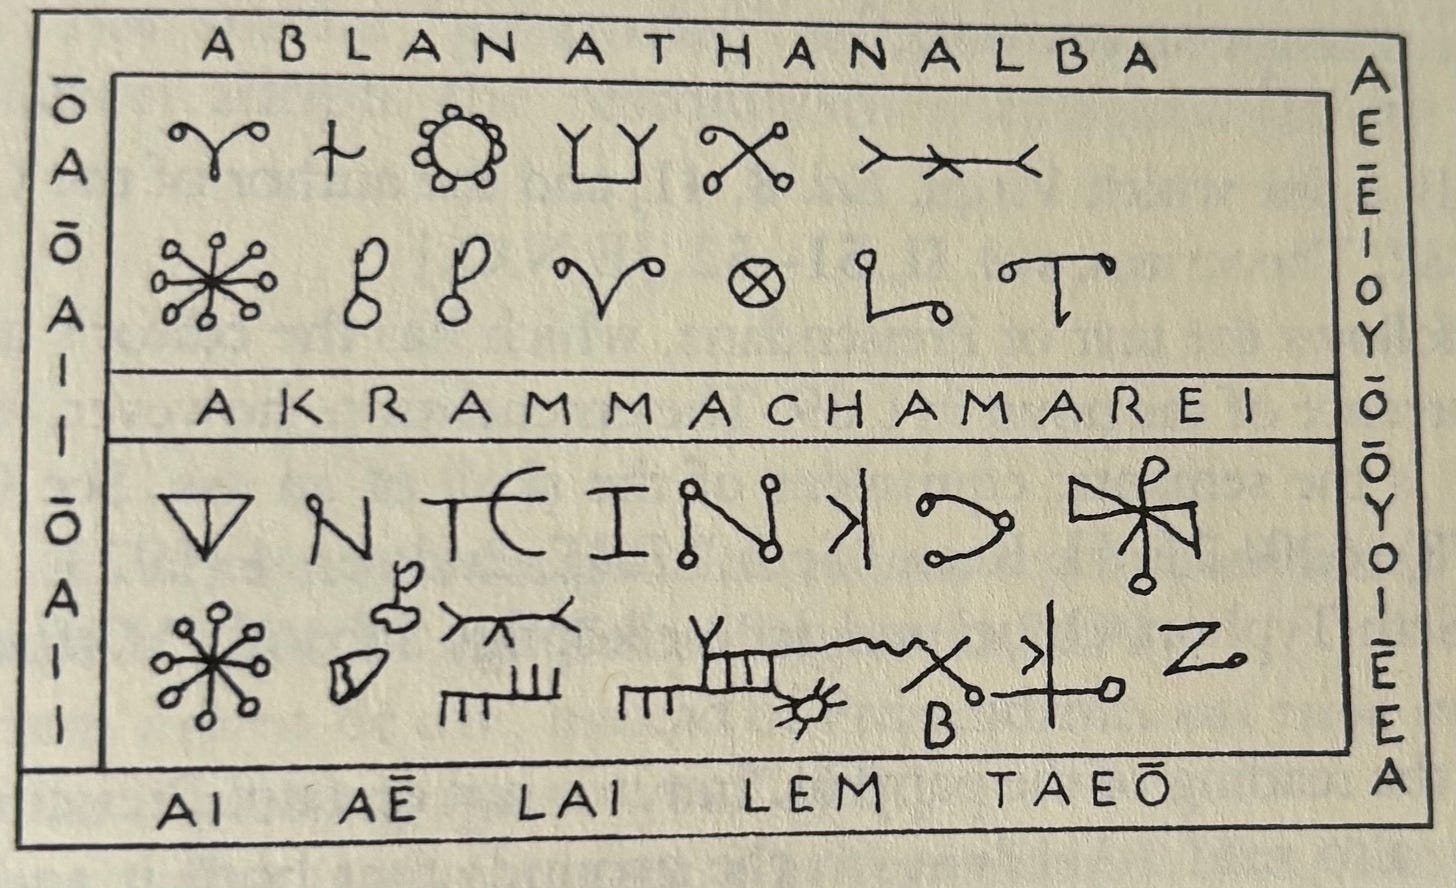 ABLANATHANALBA
ŌAŌAIIŌAII
AEĒIOYŌŌYOIĒEA
AKRAMMACHAMAREI
AI AĒ LAI LEM TAEŌ